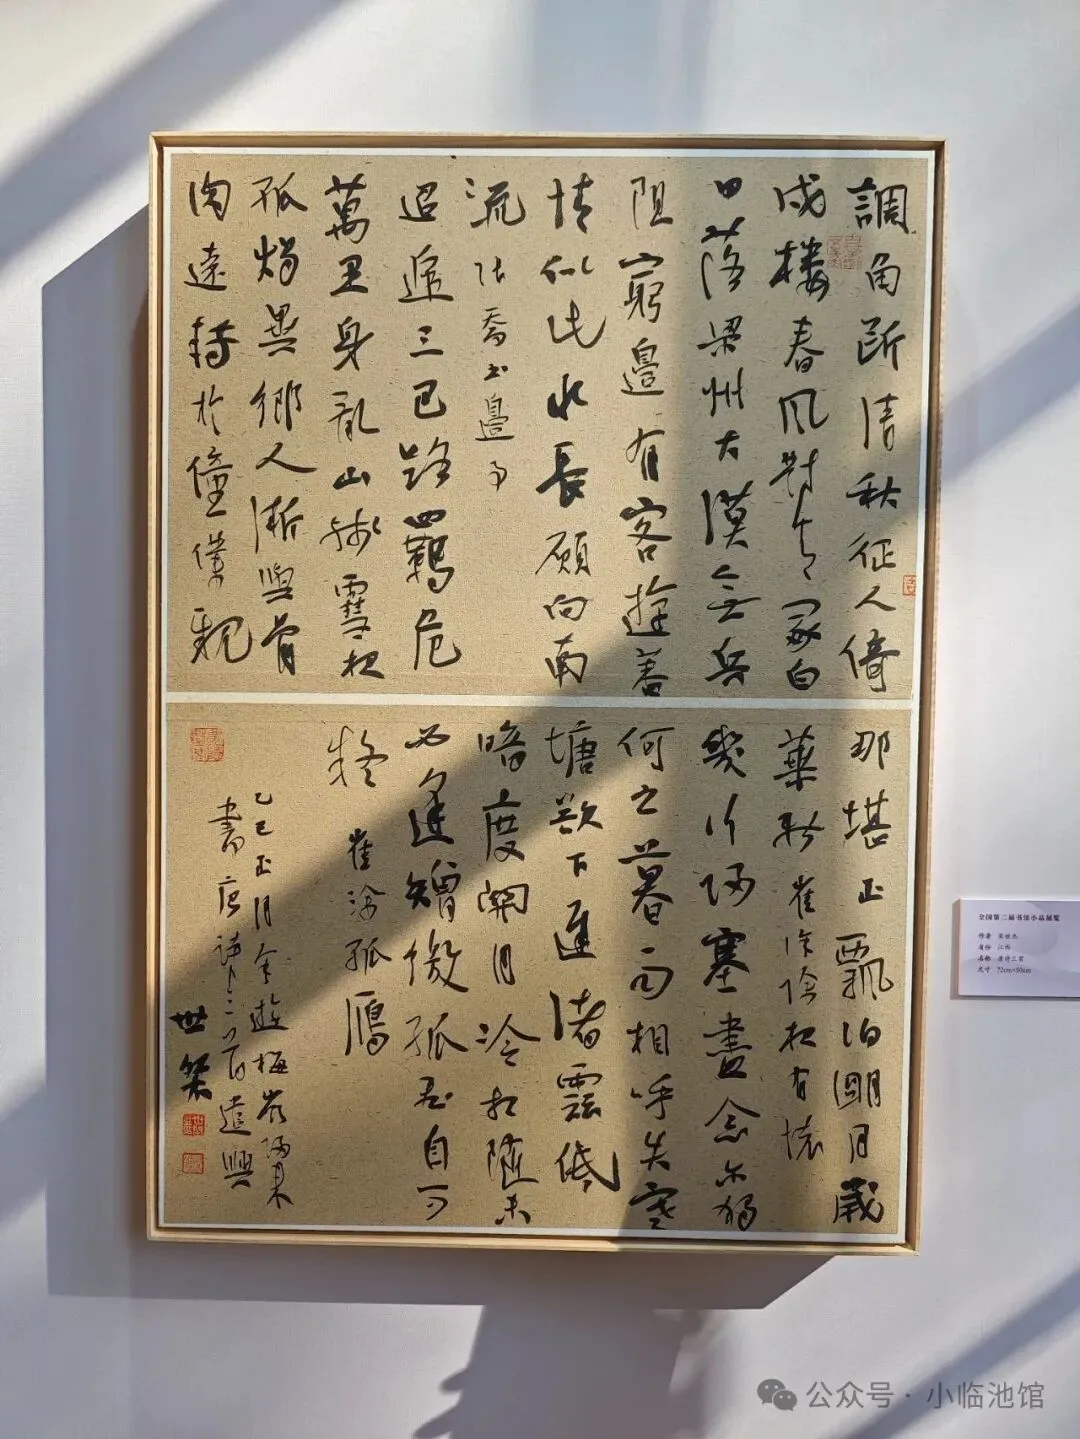 調角斷清秋征人倚
戍楼春風對青冢白
日落梁州大漠無兵
阻窮邊有客遊蕃
情似此水長願向南
流 張喬書邊事
迢遞三巴路羈危
萬里身亂山殘雪夜
孤燭異鄉人漸與骨
肉遠轉於僮僕親
那堪正飄泊朙日歲
華新 崔涂除夜有懷
幾行歸塞盡念尔獨
何之暮雨相呼失寒
塘欲下遲渚雲低
暗度關月冷相隨未
必逢矰繳孤飛自可
疑 崔涂孤鴈
乙巳正月余遊梅嶺歸來
書唐詩三首遣興
世桀
全国第二届书法小品展览
作者 宋世杰
省份 江西
名称 唐诗三首
尺寸 72cm×50cm
公众号·小临池馆